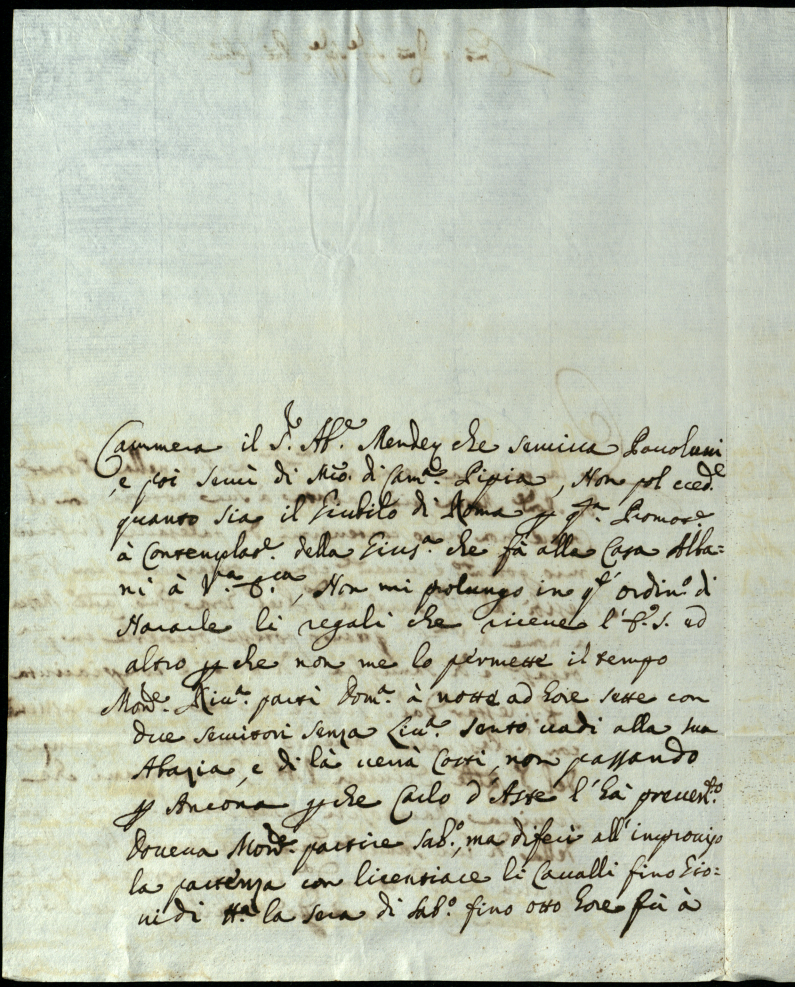 Cammera il S.re Ab.e Mendez che serviva Paoolucci
e poi servì di Mro. di Cam.a Pipia, Non pol cred.e
quanto sia il Giubilo di Roma p q.ta Promoz.e
à Contemplaz.e della Gius.a che fà alla Casa Alba=
ni à V.ra E.za, Non mi prolungo in q.to ordin.o di
Narrarle li regali che riceve l'E.o S. ed
altro p che non me lo permette il tempo
Mons.e Ricu.a partì Dom.a à notte ad hore sette con
due servitori senza Liu.a sento vadi alla sua
Abazia, e di là verrà Costì, non passando
p Ancona p che Carlo d'Aste l'hà prevert.to
Doveva Mons.e partire Sab.o, ma diferì all'improviso
la partenza con licentiare li Cavalli fino Gio=
vedi tt.a la sera di Sab.o fino otto hore fù à